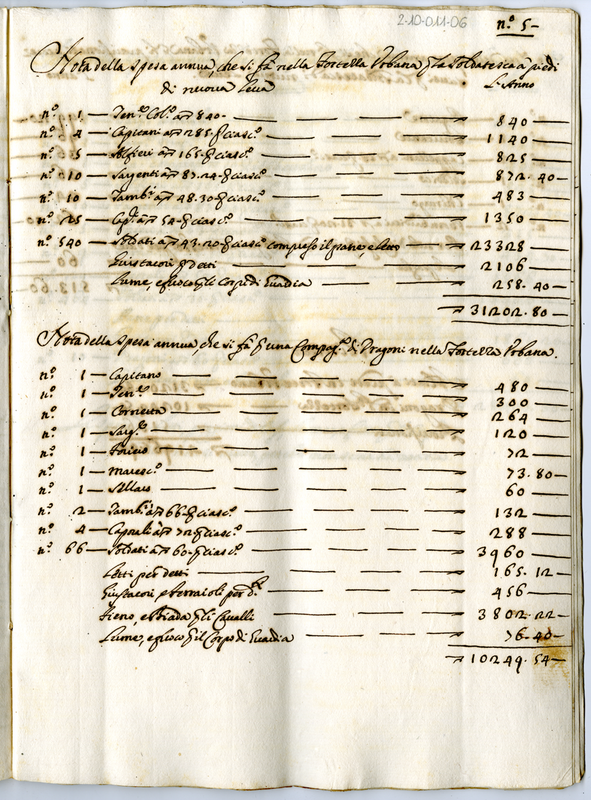 2-10-011-06
n.º 5 -
Nota della spesa annua, che si fà nella Fortezza Urbana p la Soldatesca a piedi
di nuova leva
L'Anno
n.º 1 — Ten.e Col.º a 840 - 840 —
n.º 4 — Capitani a 285 - p ciasc.º 1140 —
n.º 5 — Alfieri a 165 - p ciasc.º 825 —
n.º 10 — Sargenti a 87.24 - p ciasc.º 872.40 —
n.º 10 — Tamb.i a 48.30 - p ciasc.º 483 —
n.º 25 — Cap.li a 54 - p ciasc.º 1350 —
n.º 540 — Soldati a 43.20 - p ciasc.º compreso il pane, e letto 23328 —
Giustacori p detti 2106 —
Lume, e fuoco p gli Corpi di Guardia 258.40 —
31202.80 —
Nota della spesa annua, che si fà p una Compag.ª di Dragoni nella Fortezza Urbana.
n.º 1 — Capitano 480 —
n.º 1 — Ten.e 300 —
n.º 1 — Cornetta 264 —
n.º 1 — Sarg.e 120 —
n.º 1 — Foriero 72 —
n.º 1 — Maresc.º 73.80 —
n.º 1 — Sellaro 60 —
n.º 2 — Tamb.i a 66 - p ciasc.º 132 —
n.º 4 — Caporali a 72 - p ciasc.º 288 —
n.º 66 — Soldati a 60 - p ciasc.º 3960 —
Letti per detti 165.12 —
Giustacori, e ferraioli per d.i 456 —
Fieno, e biada p gli Cavalli 3802.22 —
Lume, e fuoco p il Corpo di Guardia 76.40 —
10249.54 —